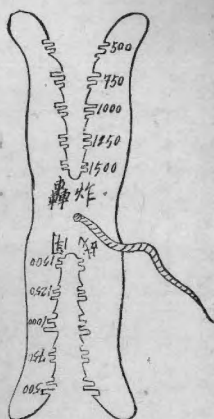 500
750
1000
1250
1500
轟炸
1500
1250
1000
750
500